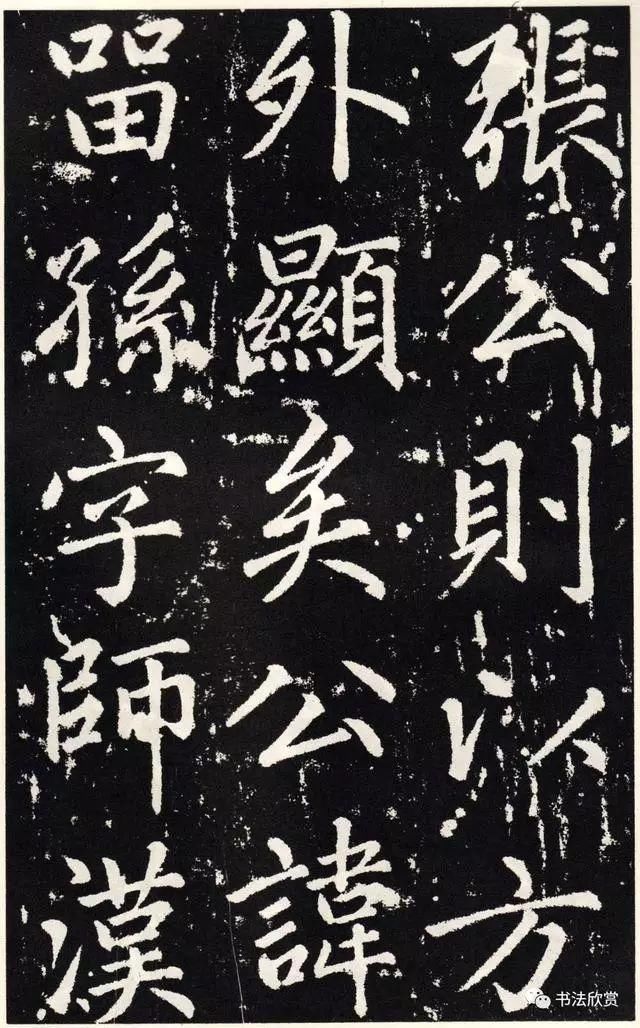 張公則以方
外顯矣公諱
留孫字師漢
书法欣赏